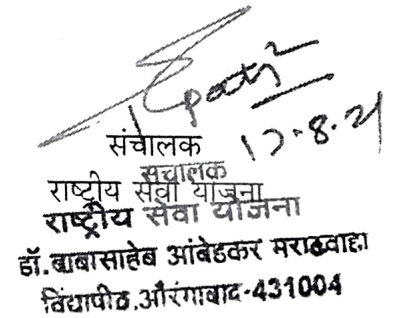 17.8.21
संचालक
संचालक
राष्ट्रीय सेवा योजना
राष्ट्रीय सेवा योजना
डॉ. बाबासाहेब आंबेडकर मराठवाडा
विद्यापीठ, औरंगाबाद-431004